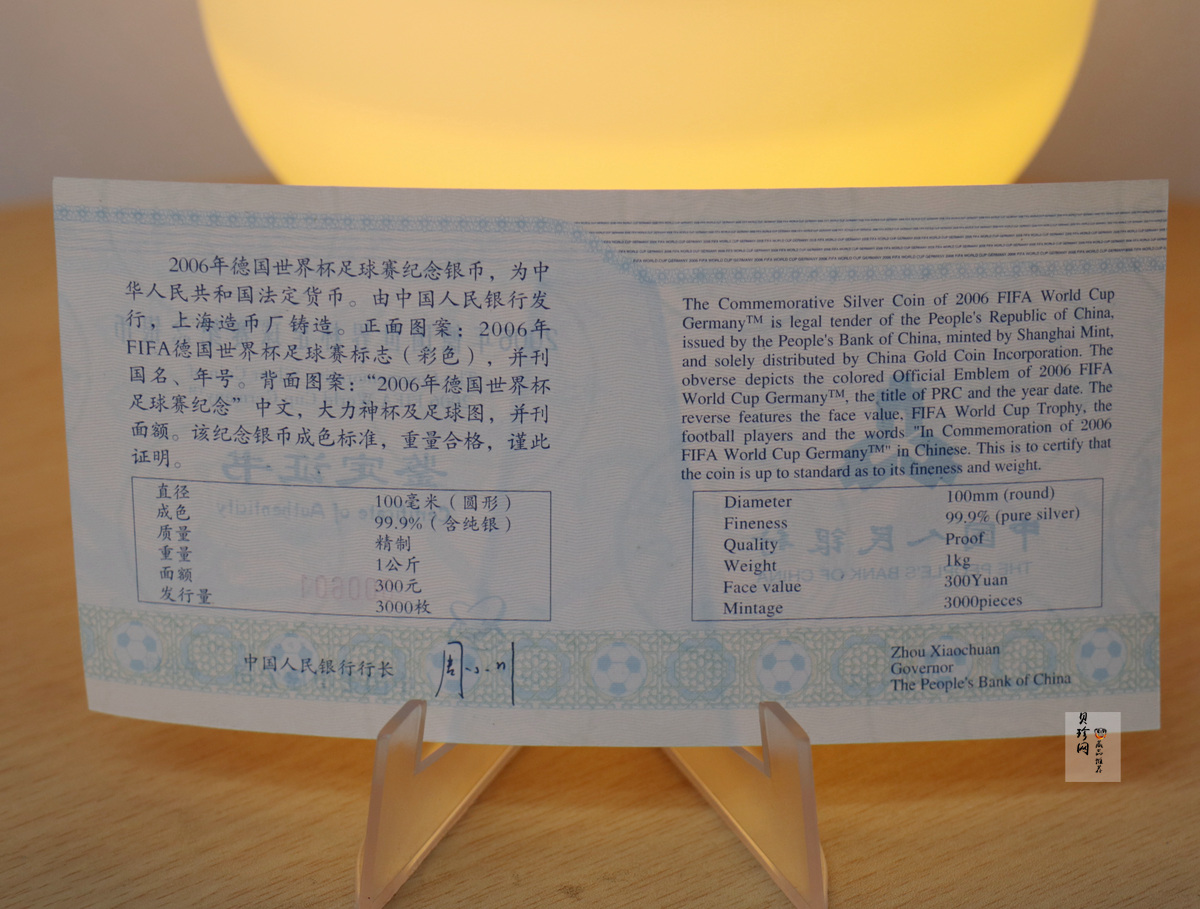 2006年德国世界杯足球赛纪念银币，为中
华人民共和国法定货币。由中国人民银行发
行，上海造币厂铸造。正面图案：2006年
FIFA德国世界杯足球赛标志（彩色），并刊
国名、年号。背面图案：“2006年德国世界杯
足球赛纪念”中文，大力神杯及足球图，并刊
面额。该纪念银币成色标准，重量合格，谨此
证明。
直径 100毫米（圆形）
成色 99.9%（含纯银）
质量 精制
重量 1公斤
面额 300元
发行量 3000枚
中国人民银行行长
The Commemorative Silver Coin of 2006 FIFA World Cup
Germany™ is legal tender of the People's Republic of China,
issued by the People's Bank of China, minted by Shanghai Mint,
and solely distributed by China Gold Coin Incorporation. The
obverse depicts the colored Official Emblem of 2006 FIFA
World Cup Germany™, the title of PRC and the year date. The
reverse features the face value, FIFA World Cup Trophy, the
football players and the words "In Commemoration of 2006
FIFA World Cup Germany™" in Chinese. This is to certify that
the coin is up to standard as to its fineness and weight.
Diameter 100mm (round)
Fineness 99.9% (pure silver)
Quality Proof
Weight 1kg
Face value 300Yuan
Mintage 3000pieces
Zhou Xiaochuan
Governor
The People's Bank of China
贝珍网
藏品推荐